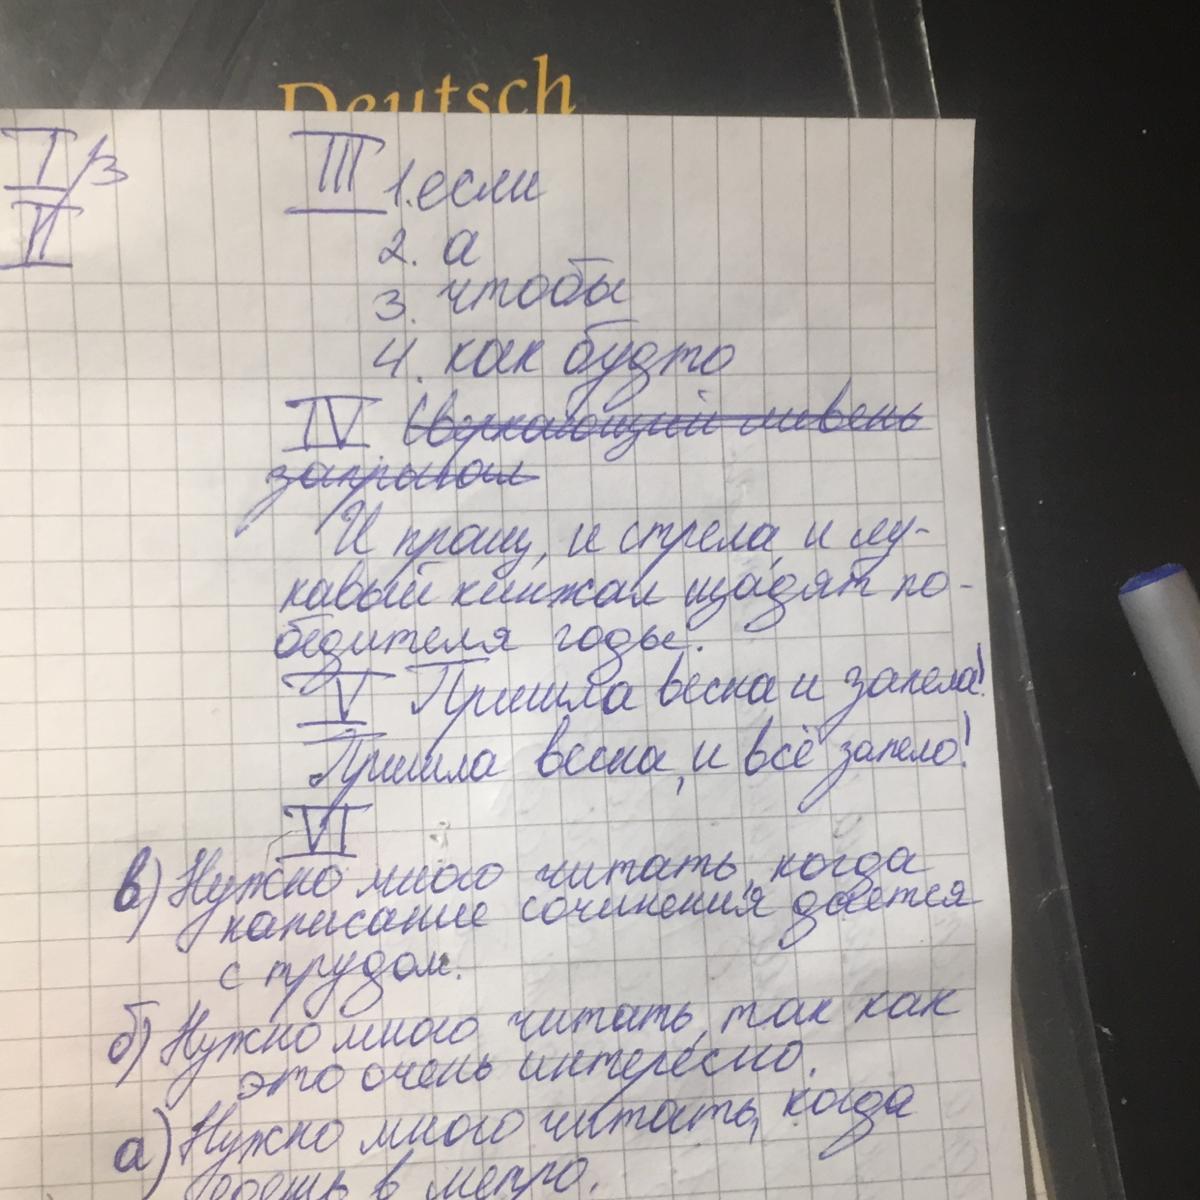 Deutsch
I/3
II
III 1. если
2. а
3. чтобы
4. как будто
IV Сверкающий ливень
запрыгал
И пращ, и стрела, и лу-
кавый кинжал щадят по-
бедителя годы.
V Пришла весна и запела!
Пришла весна, и всё запело!
VI
в) Нужно много читать, когда
написание сочинения даётся
с трудом.
б) Нужно много читать, так как
это очень интересно.
а) Нужно много читать, когда
едешь в метро.